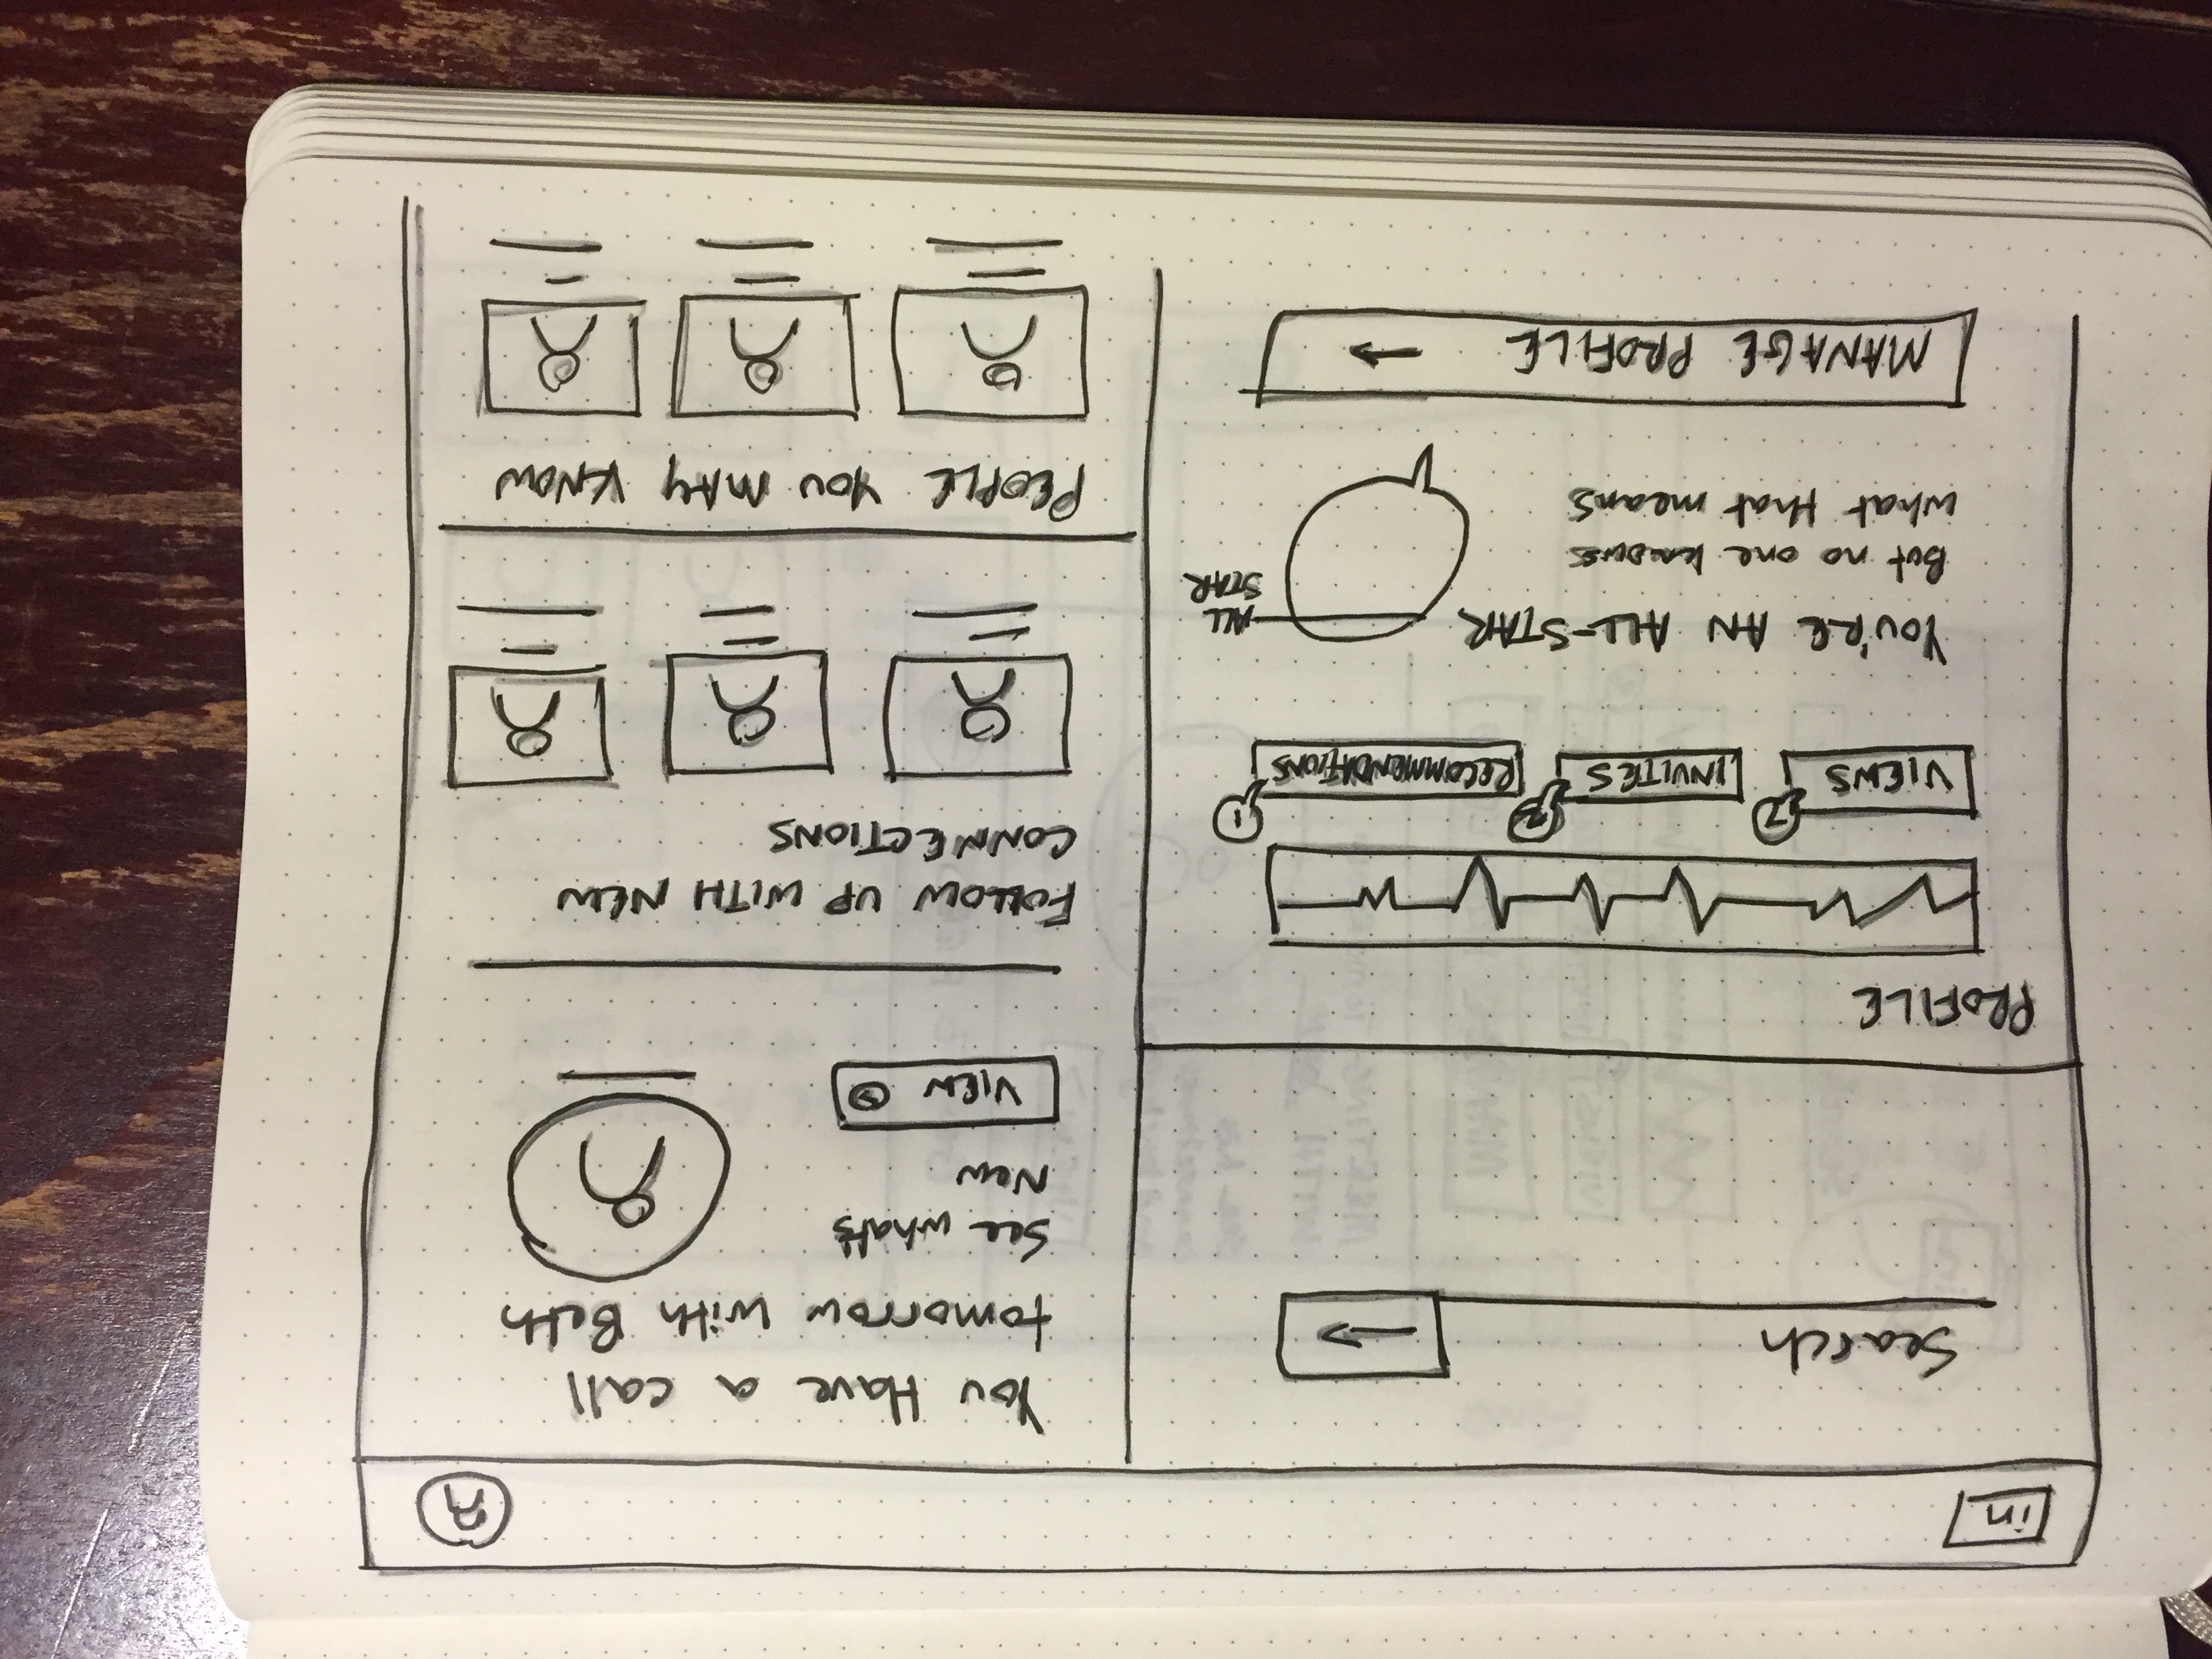 in
Search
PROFILE
VIEWS 7
INVITES 2
RECOMMENDATIONS 1
YOU'RE AN ALL-STAR
But no one knows
what that means
ALL
STAR
MANAGE PROFILE →
You Have a call
tomorrow with Beth
See what's
New
VIEW
FOLLOW UP WITH NEW
CONNECTIONS
PEOPLE YOU MAY KNOW